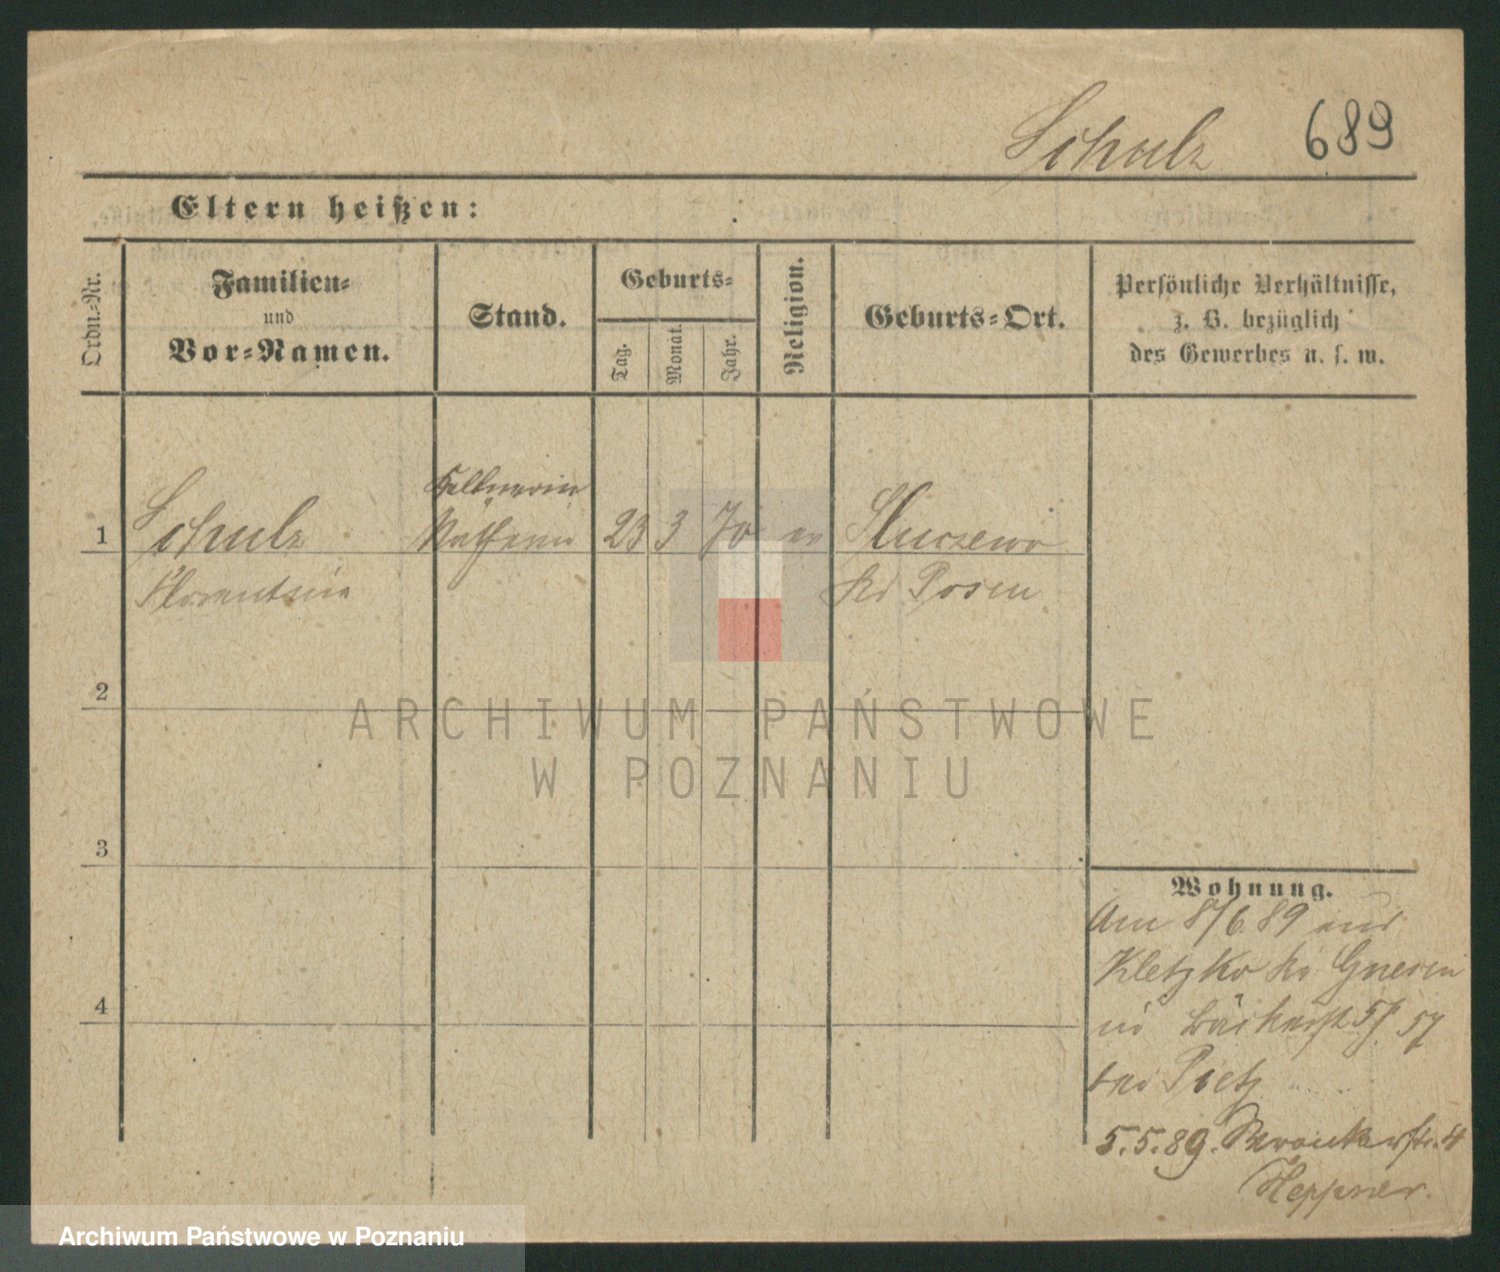 Schulz 689
Eltern heißen:
Ordn.-Nr.
Familien-
und
Vor-Namen.
Stand.
Geburts-
Tag.
Monat.
Jahr.
Religion.
Geburts-Ort.
Persönliche Verhältnisse,
z. B. bezüglich
des Gewerbes u. s. w.
Kellnerin
1 Schulz Näherin 23 3 70 ev
Florentine Kr Posen
2
3
4
Wohnung.
Am 8/6 89 aus
Kletzko Kr Gnesen
in Bäckerst 57
bei Pietz
5.5.89. Wronkerstr. 4
Heppner.
ARCHIWUM PAŃSTWOWE
W POZNANIU
Archiwum Państwowe w Poznaniu